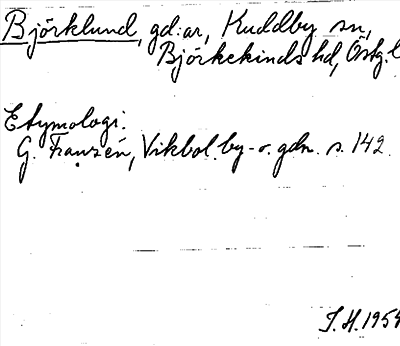 Björklund, gd:ar, Kuddby sn,
Björkekinds hd, Östg. l
Etymologi.
G. Franzén, Vikbol. by- o. gdn. s. 142.
I. H. 195